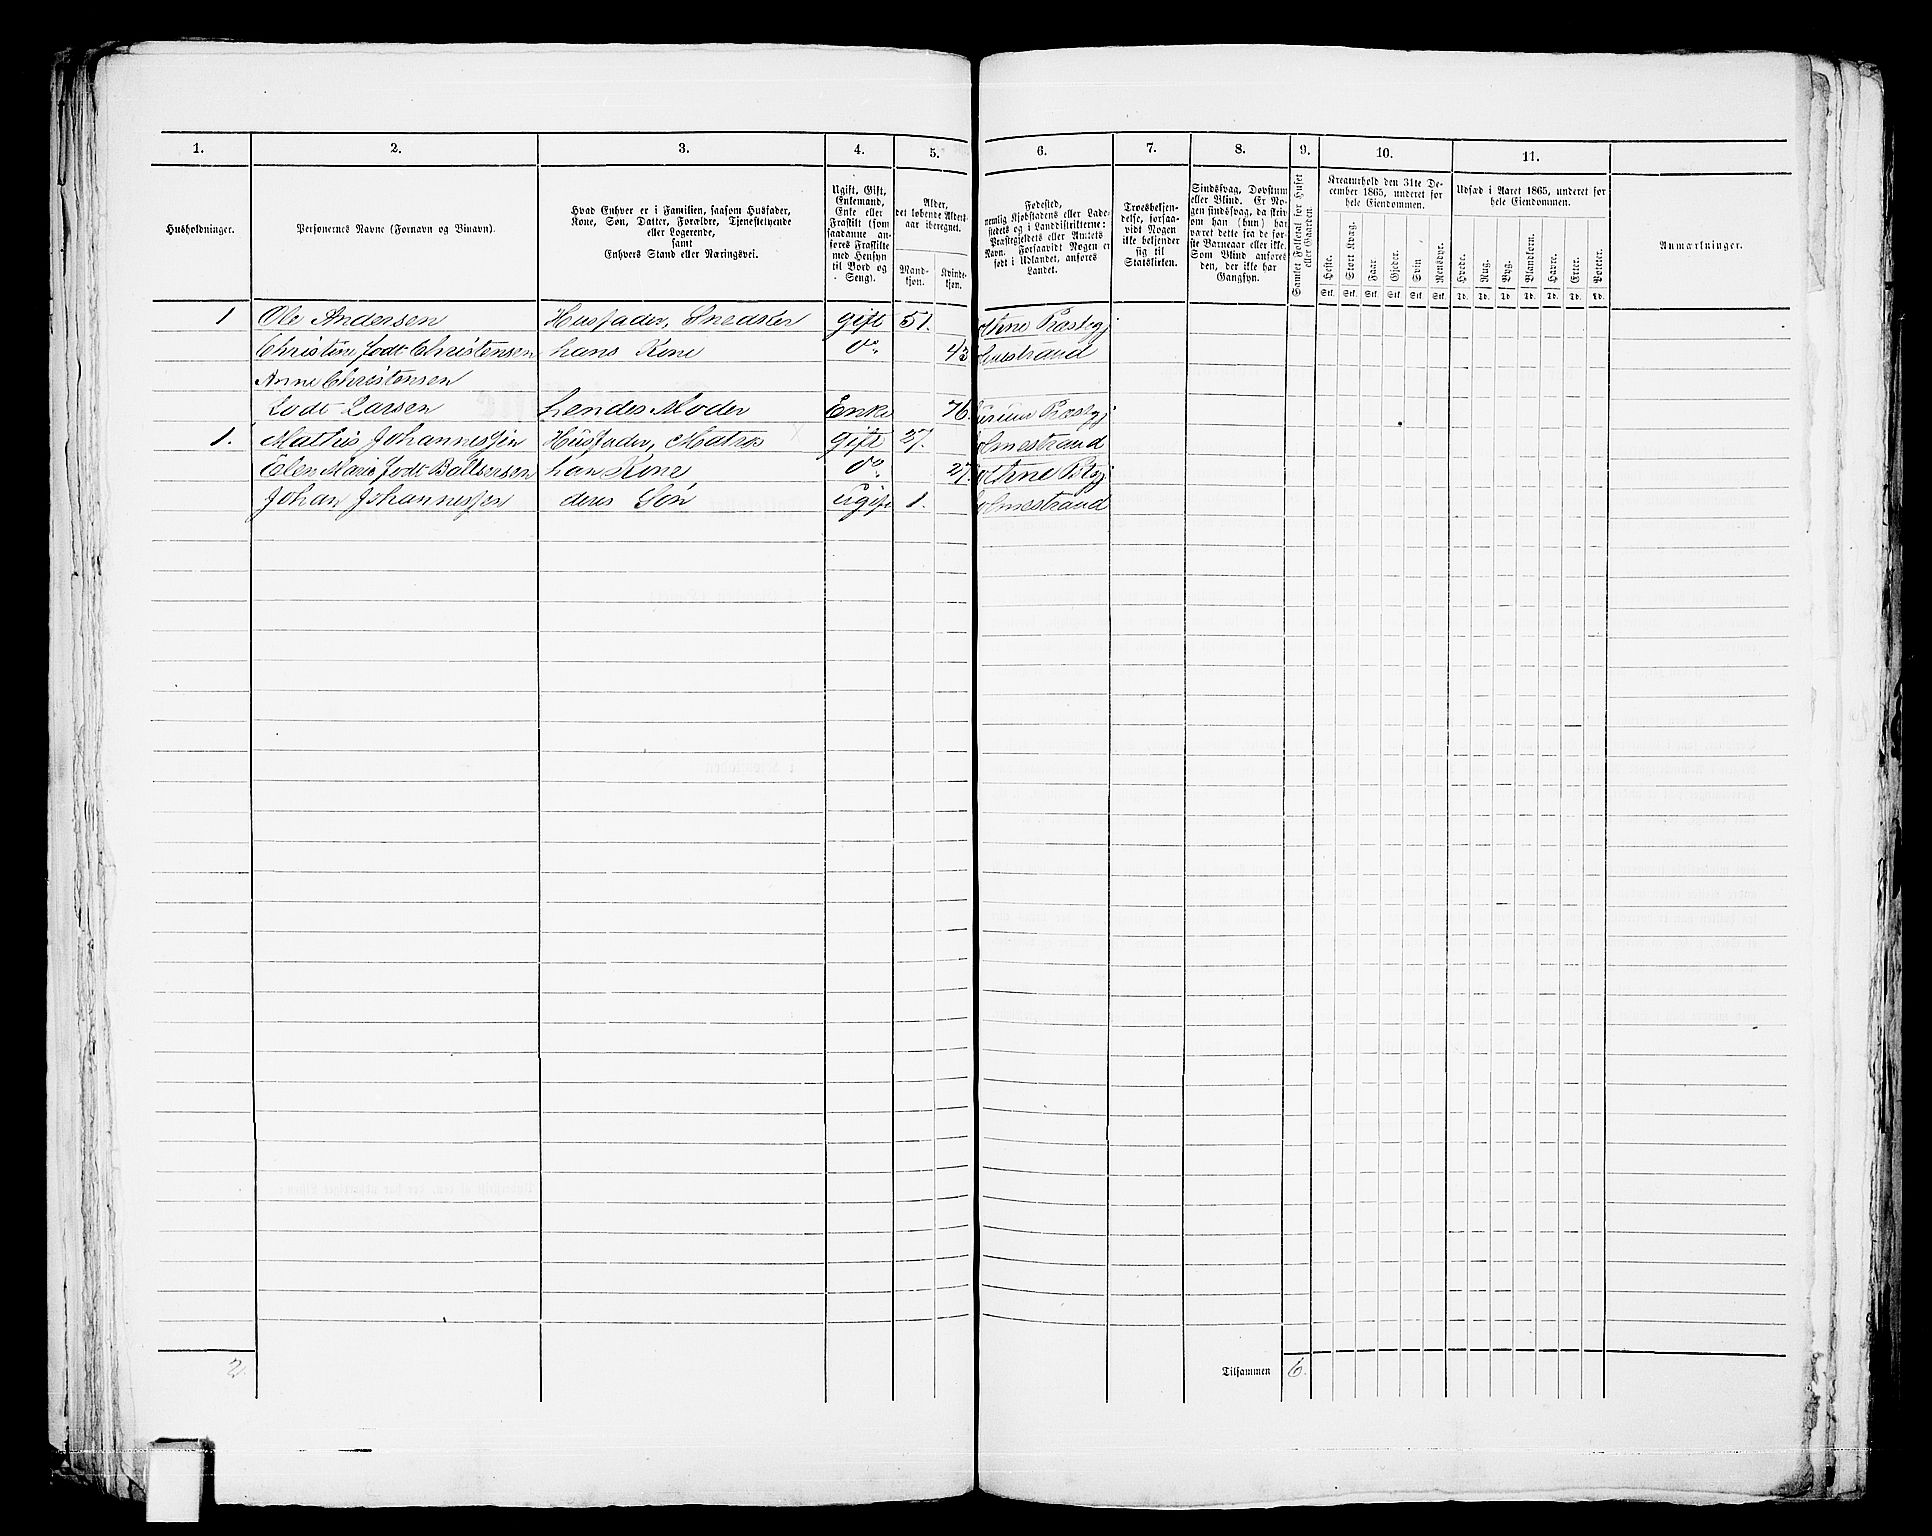 1. 2. 3. 4. 5. 6. 7. 8. 9. 10. 11.
Husholdninger.
Personernes Navne (Fornavn og Binavn).
Hvad Enhver er i Familien, saasom Husfader,
Kone, Søn, Datter, Forældre, Tjenestetyende
eller Logerende,
samt
Enhvers Stand eller Næringsvei.
Ugift, Gift,
Enkemand,
Enke eller
Fraskilt (som
saadanne an-
føres Fraskilte
med Hensyn
til Bord og
Seng).
Alder,
det løbende Alders-
aar iberegnet.
Mand-
kjøn.
Kvinde-
kjøn.
Fødested,
nemlig Kjøbstadens eller Lade-
stedets og i Landdistrikterne:
Præstegjeldets eller Amtets
Navn. Forsaavidt Nogen er
født i Udlandet, anføres
Landet.
Troesbekjen-
delse, forsaa-
vidt Nogen
ikke bekjender
sig til
Statskirken.
Sindssvag, Døvstum
eller Blind. Er No-
gen sindssvag, da skriv
om han (hun) har
været dette fra de før-
ste Barneaar eller ikke.
Som Blind anføres
den, der ikke har
Gangsyn.
Samlet Folketal for Huset
eller Gaarden.
Kreaturhold den 31te De-
cember 1865, underet for
hele Eiendommen.
Heste. Stort Kvæg. Faar. Gjeder. Svin. Rensdyr.
Stk. Stk. Stk. Stk. Stk. Stk.
Udsæd i Aaret 1865, underet for
hele Eiendommen.
Hvede. Rug. Byg. Blandkorn. Havre. Erter. Poteter.
Td. Td. Td. Td. Td. Td. Td.
Anmærkninger.
1 Ole Andersen Husfader, Snedker gift 51. Præstegj
Christine født Christensen hans Kone do 43 olmestrand
Anne Christensen
født Larsen hendes Moder Enke 76. Præstegj
1. Mathis Johannessen Husfader, Matros gift 27. Holmestrand
Elen Marie født Baltsersen han Kone do 27.
Johan Johannessen deres Søn ugift 1. Holmestrand
2 Tilsammen 6.